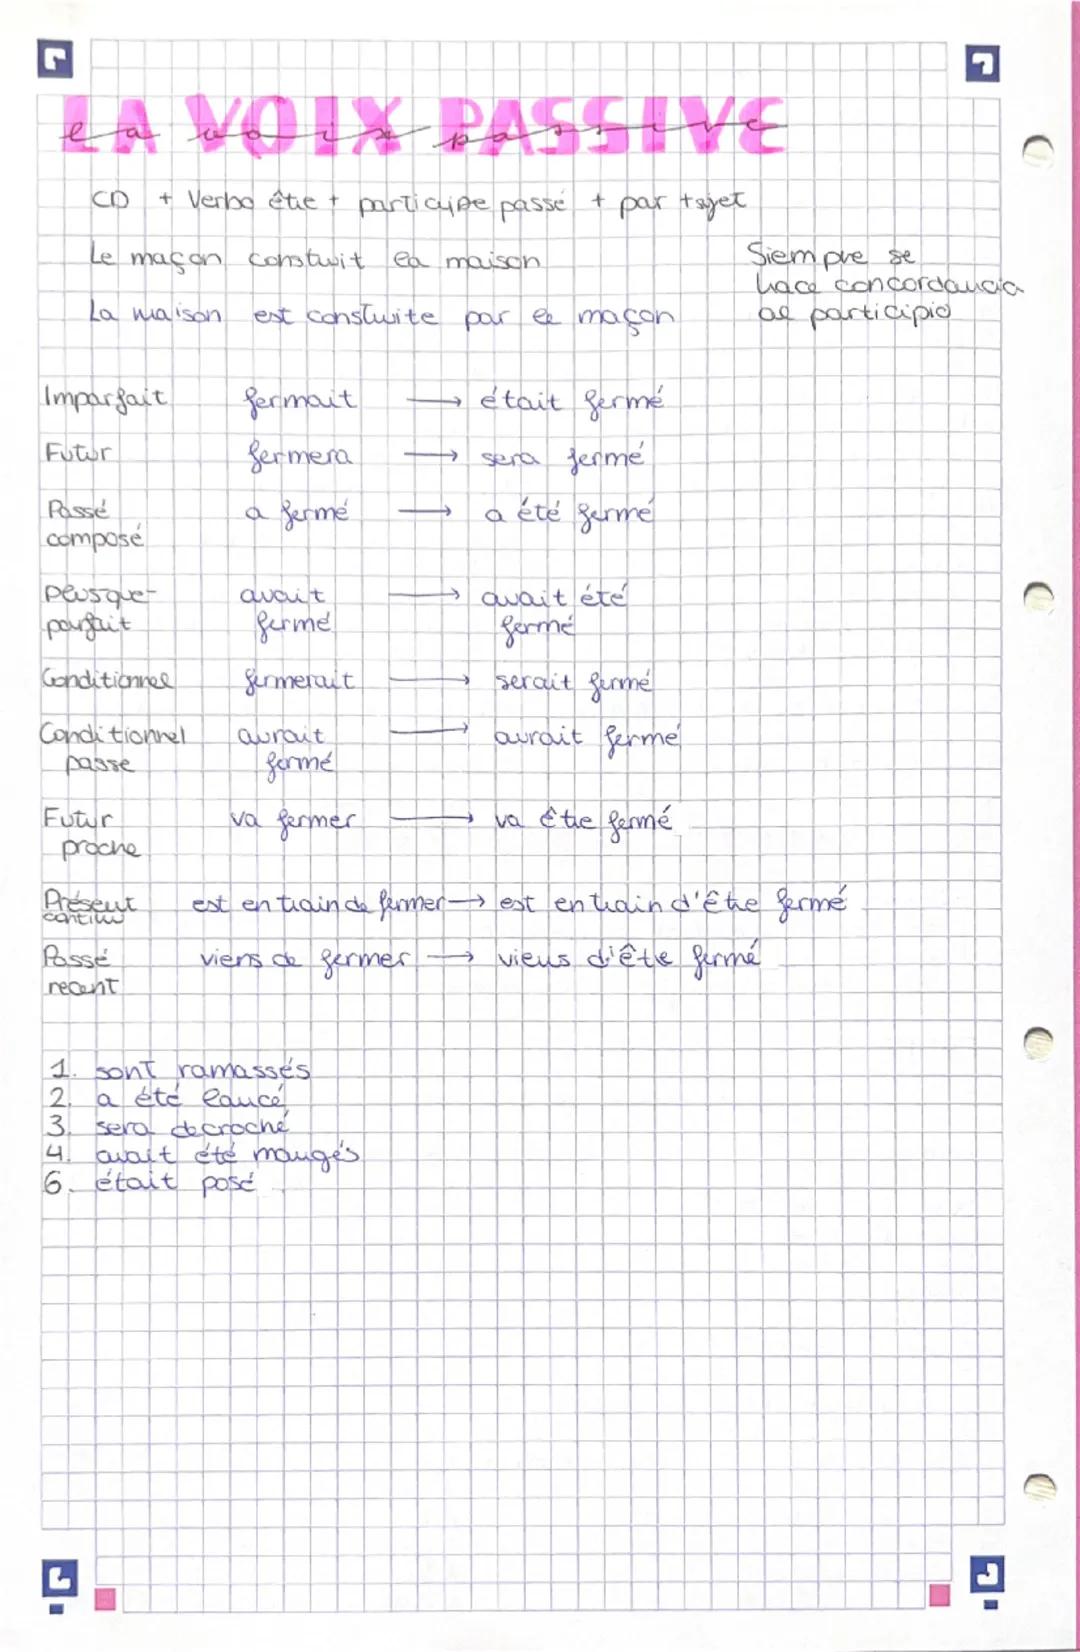 LA VOIX PASSIVE
la voix passive
CD + Verbo être + participe passé + par + sujet
Le maçon construit la maison
La maison est construite par le maçon
Siempre se
hace concordancia
al participio
Imparfait fermait → était fermé
Futur fermera → sera fermé
Passé composé a fermé → a été fermé
plusque-parfait avait fermé → avait été fermé
Conditionnel fermerait → serait fermé
Conditionnel passe aurait fermé → aurait fermé
Futur proche va fermer → va être fermé
Présent continu est en train de fermer → est en train d'être fermé
Passé recent viens de fermer → viens d'être fermé
1. sont ramassés
2. a été lancé
3. sera decroché
4. avait été mangés
6. était posé